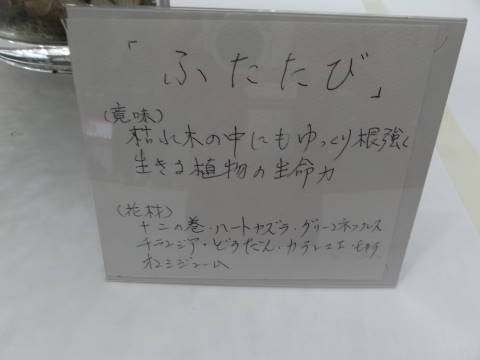 「ふたたび」
(意味)
枯れ木の中にもゆっくり根強く
生きる植物の生命力
(花材)
十二の巻・ハートカズラ・グリーンネックレス
チランジア・どうだん・カラレエ・
オンシジューム